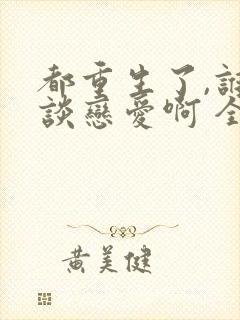 都重生了,誰
談戀愛啊 全
黃美健